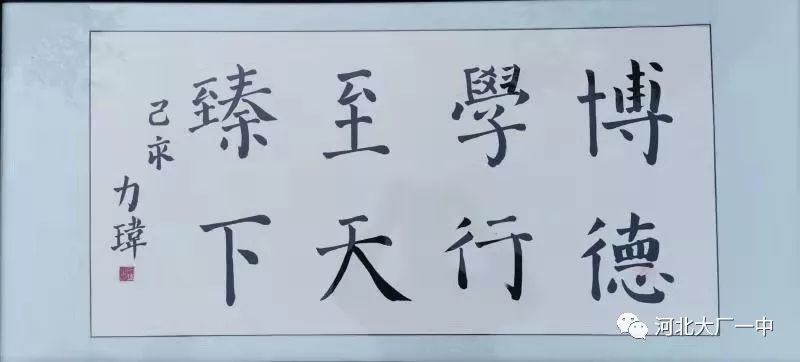 博學至臻
德行天下
己亥
力瑋
河北大厂一中